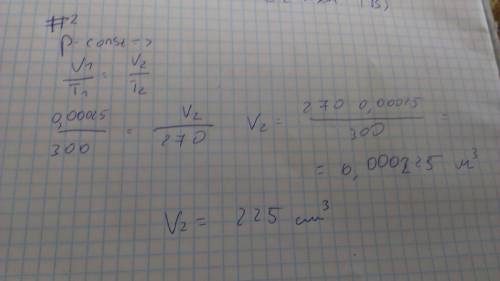 #2
p - const ->
V1/T1 = V2/T2
0,00025/300 = V2/270 V2 = 270 0,00025/300 =
= 0,000225 м³
V2 = 225 cm³